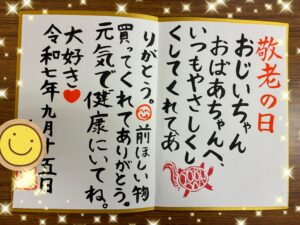 敬老の日
おじいちゃん
おばあちゃんへ
いつもやさしくし
くしてくれてあ
りがとう。前ほしい物
買ってくれてありがとう。
元気で健康にいてね。
大好き❤
令和七年九月十五日